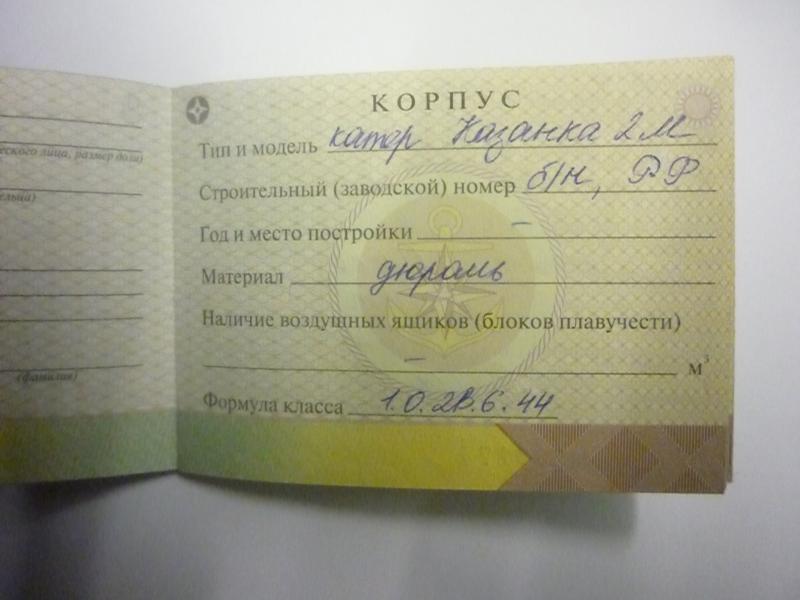 КОРПУС
Тип и модель катер Казанка 2М
Строительный (заводской) номер б/н, РФ
Год и место постройки –
Материал дюраль
Наличие воздушных ящиков (блоков плавучести)
– м³
Формула класса 1.0.2В.6.44
ского лица, размер доли)
(фамилия)